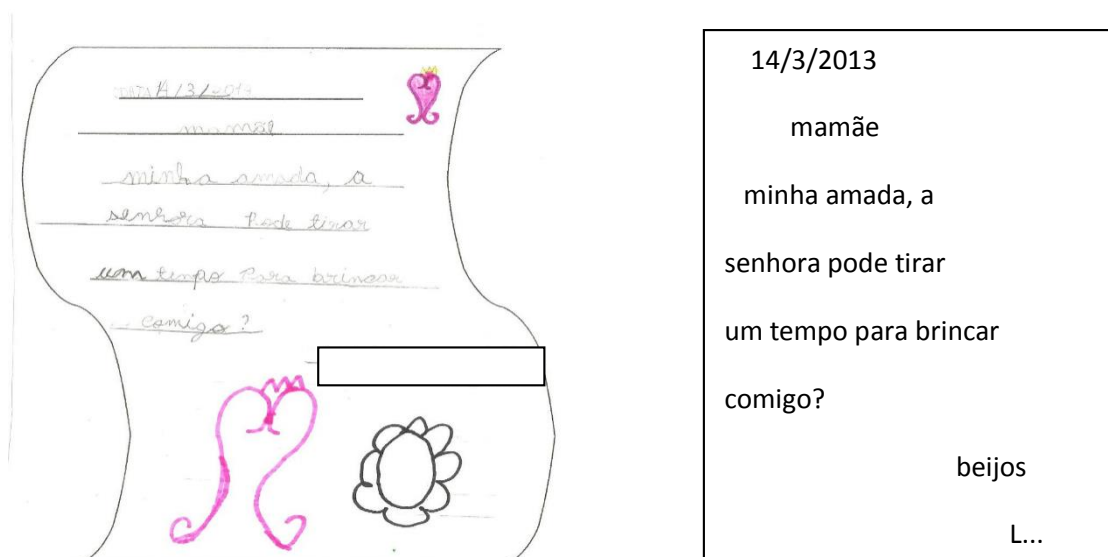 DATA 14/3/2013
mamãe
minha amada, a
senhora pode tirar
um tempo para brincar
comigo?
14/3/2013
mamãe
minha amada, a
senhora pode tirar
um tempo para brincar
comigo?
beijos
L...